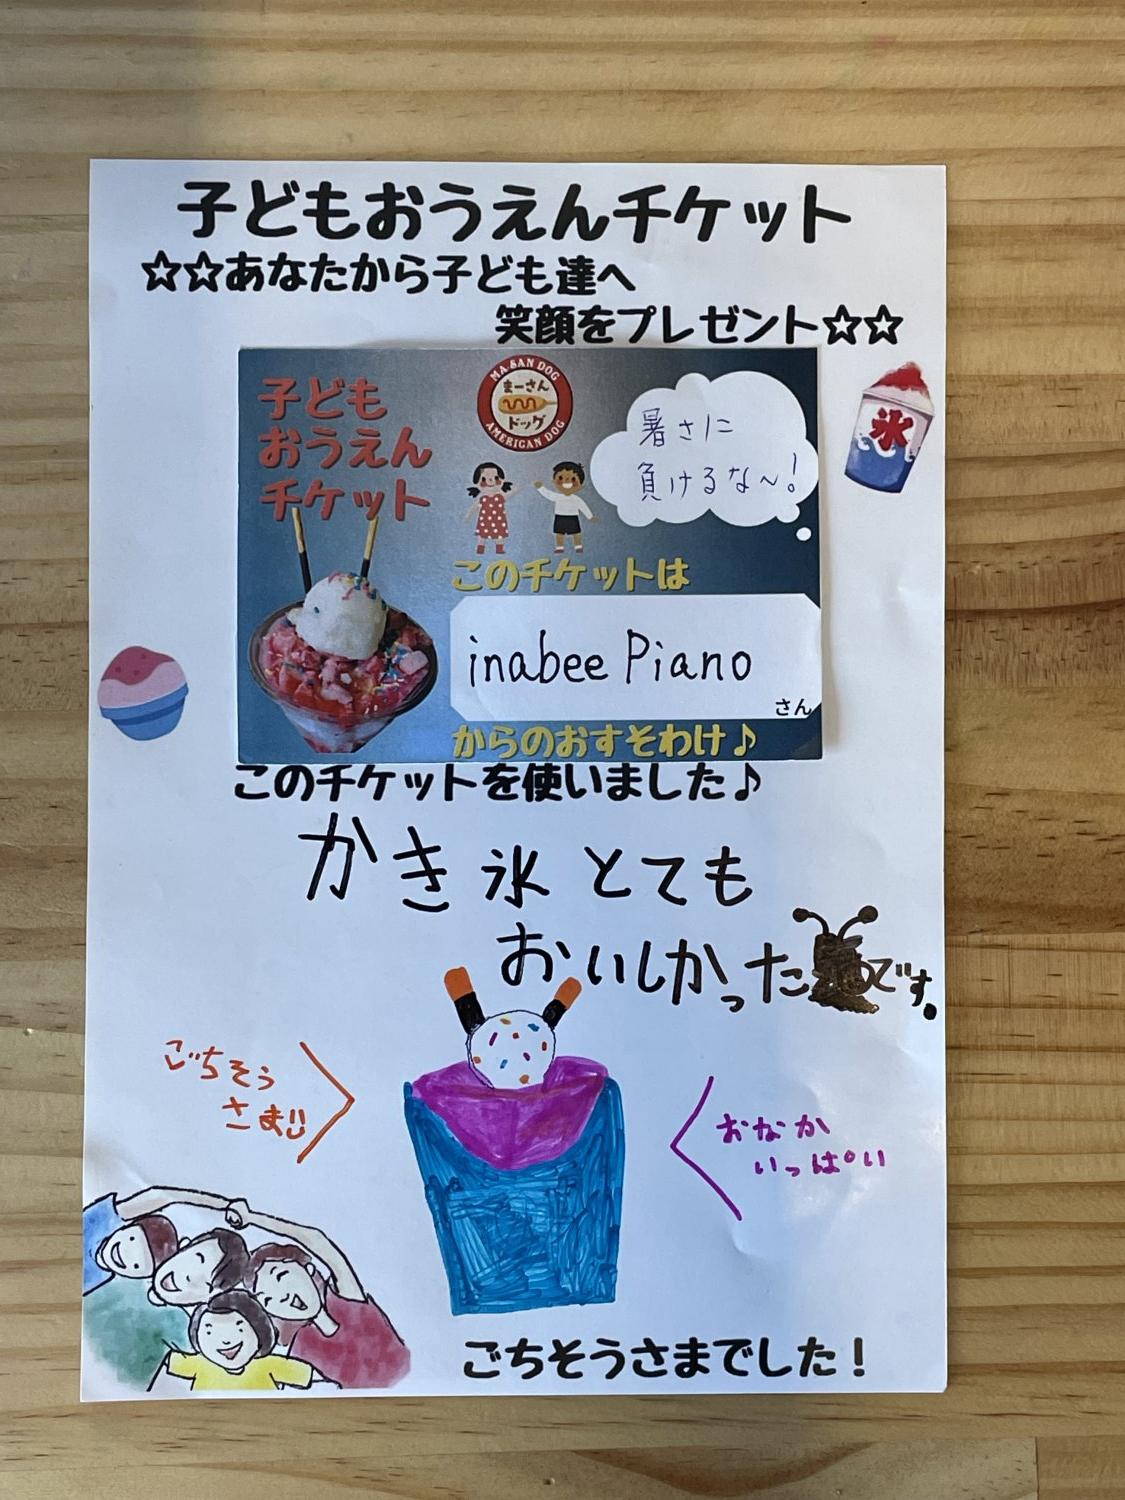 子どもおうえんチケット
☆☆あなたから子ども達へ
笑顔をプレゼント☆☆
子ども
おうえん
チケット
MA SAN DOG
まーさん
ドッグ
AMERICAN DOG
暑さに
負けるな〜!
氷
このチケットは
inabee Piano
さん
からのおすそわけ♪
このチケットを使いました♪
かき氷とても
おいしかったです。
ごちそう
さま
おなか
いっぱい
ごちそうさまでした!